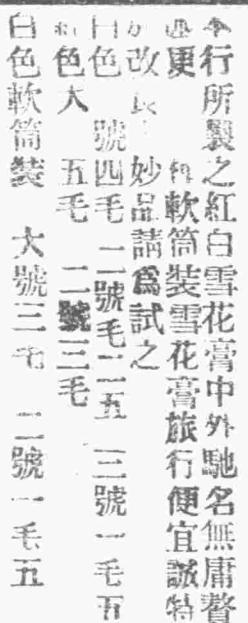 本行所製之紅白雪花膏中外馳名無庸贅
述更 軟筒裝雪花膏旅行便宜誠特
改良 妙品請爲試之
白色 號四毛 二號毛二五 三號一毛五
紅色大 五毛 二號三毛
白色軟筒裝 大號三毛 二號一毛五